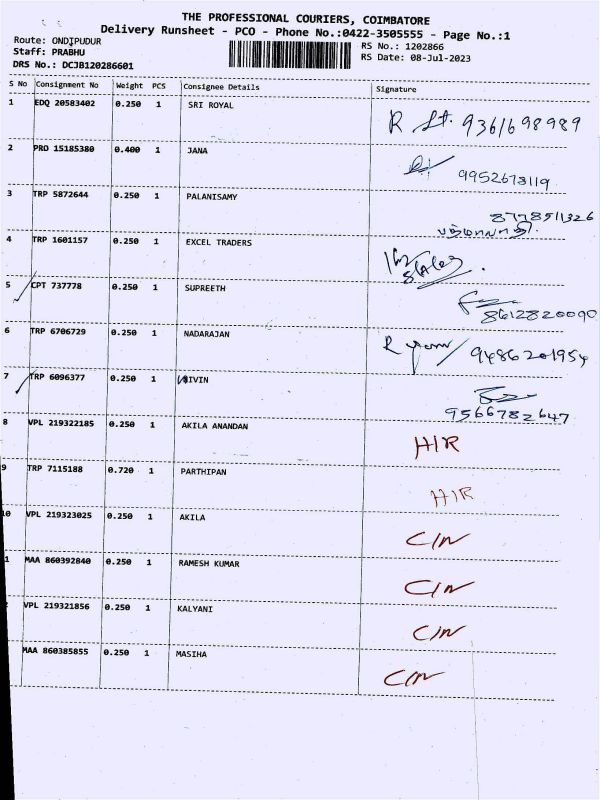 THE PROFESSIONAL COURIERS, COIMBATORE
Delivery Runsheet - PCO - Phone No.:0422-3505555 - Page No.:1
Route: ONDIPUDUR
RS No.: 1202866
Staff: PRABHU
RS Date: 08-Jul-2023
DRS No.: DCJB120286601
S No Consignment No Weight PCS Consignee Details Signature
1 EDQ 20583402 0.250 1 SRI ROYAL
9361698989
2 PRO 15185380 0.400 1 JANA
9952673119
3 TRP 5872644 0.250 1 PALANISAMY
8778511326
4 TRP 1601157 0.250 1 EXCEL TRADERS
5 CPT 737778 0.250 1 SUPREETH
8612820090
6 TRP 6706729 0.250 1 NADARAJAN
9486201954
7 TRP 6096377 0.250 1 VIVIN
9566782647
8 VPL 219322185 0.250 1 AKILA ANANDAN H/R
9 TRP 7115188 0.720 1 PARTHIPAN H/R
10 VPL 219323025 0.250 1 AKILA C/N
1 MAA 860392840 0.250 1 RAMESH KUMAR C/N
2 VPL 219321856 0.250 1 KALYANI C/N
MAA 860385855 0.250 1 MASIHA C/N